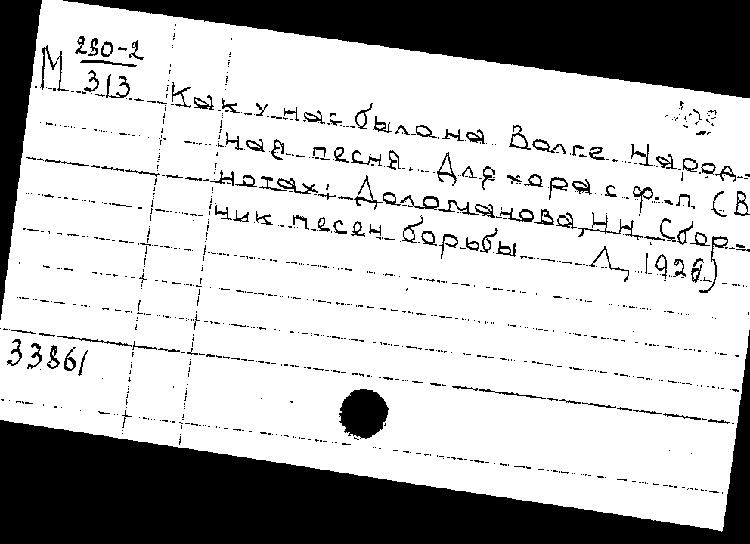 М 280-2
313
Как у нас было на Волге. Народ-
ная песня. Для хора с ф.-п. (В
нотах: Доломанова, Н.Н. Сбор-
ник песен борьбы. Л., 1926)
33861